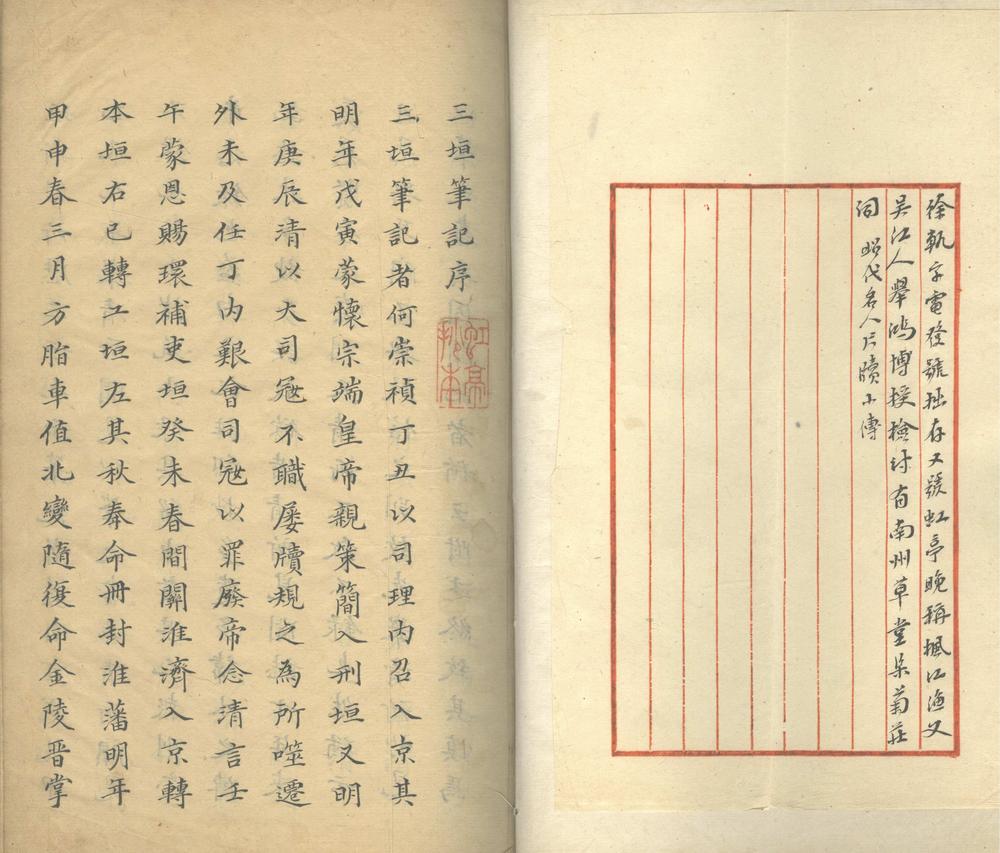 徐釚字電發號拙存又號虹亭晚稱楓江漁父
吳江人舉鴻博授檢討有南州草堂集菊莊
詞 昭代名人尺牘小傳
三垣筆記序
虹亭抄本
三垣筆記者何崇禎丁丑以司理内召入京其
明年戊寅蒙懷宗端皇帝親策簡入刑垣又明
年庚辰清以大司寇不職屡牘規之為所噬遷
外未及任丁内艱會司寇以罪廢帝念清言壬
午蒙恩賜環補吏垣癸未春間關淮濟入京轉
本垣右已轉工垣左其秋奉命冊封淮藩明年
甲申春三月方脂車值北變隨復命金陵晋掌